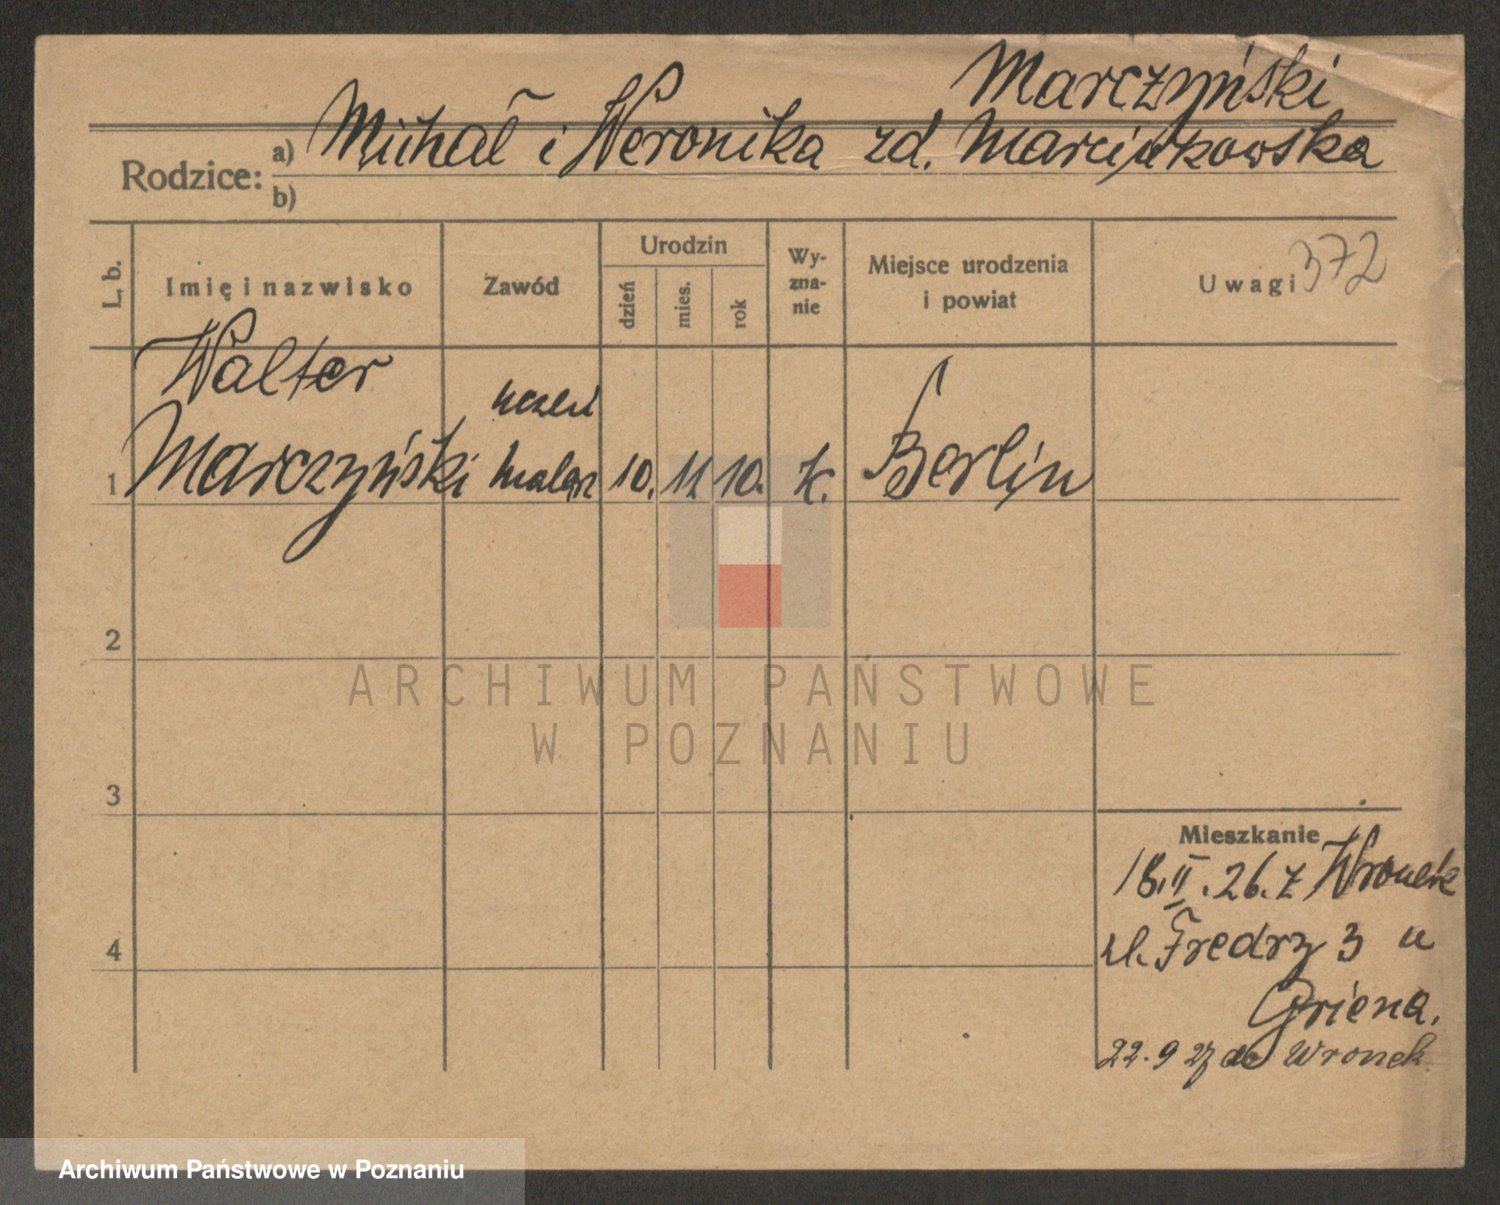 Marczyński
Rodzice: a) Michał i Weronika zd. Marcinkowska
b)
L. b.
Imię i nazwisko
Zawód
Urodzin
dzień
mies.
rok
Wy-
zna-
nie
Miejsce urodzenia
i powiat
Uwagi 372
Walter
uczeń
1 Marczyński malarz 10. 11 10. k. Berlin
2
3
4
Mieszkanie
18.II.26. z Wronek
ul. Fredry 3 u
Griena.
22.9 27 do Wronek.
ARCHIWUM PAŃSTWOWE
W POZNANIU
Archiwum Państwowe w Poznaniu